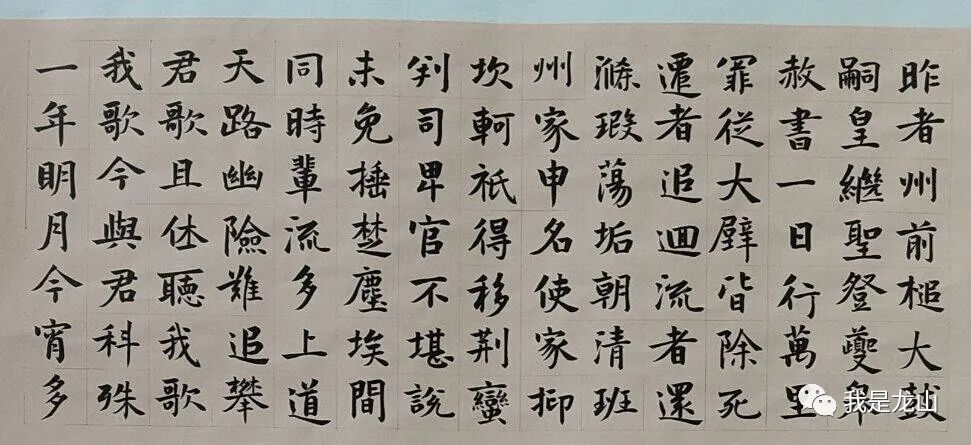 昨者州前槌大鼓
嗣皇繼聖登夔皐
赦書一日行萬里
罪從大辟皆除死
遷者追迴流者還
滌瑕蕩垢朝清班
州家申名使家抑
坎軻祇得移荆蠻
判司卑官不堪説
未免捶楚塵埃間
同時輩流多上道
天路幽險難追攀
君歌且休聽我歌
我歌今與君科殊
一年明月今宵多
我是龙山